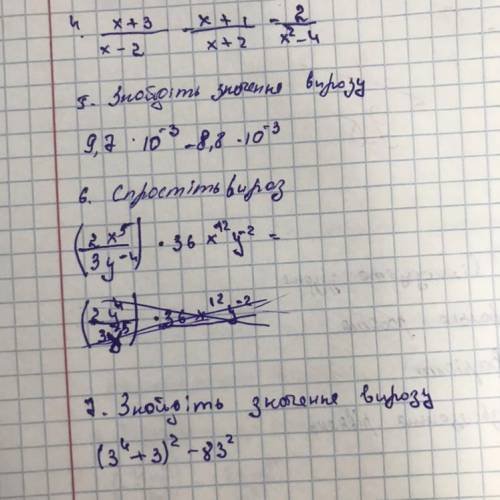 4. (x+3)/(x-2) - (x+1)/(x+2) = 2/(x²-4)
5. Знойдіть значення вирозу
9,7 · 10⁻³ - 8,8 · 10⁻³
6. Спростіть вироз
(2x⁵/3y⁻⁴) · 36 x¹² y⁻² =
7. Знойдіть значення вирозу
(3⁴+3)² - 83²